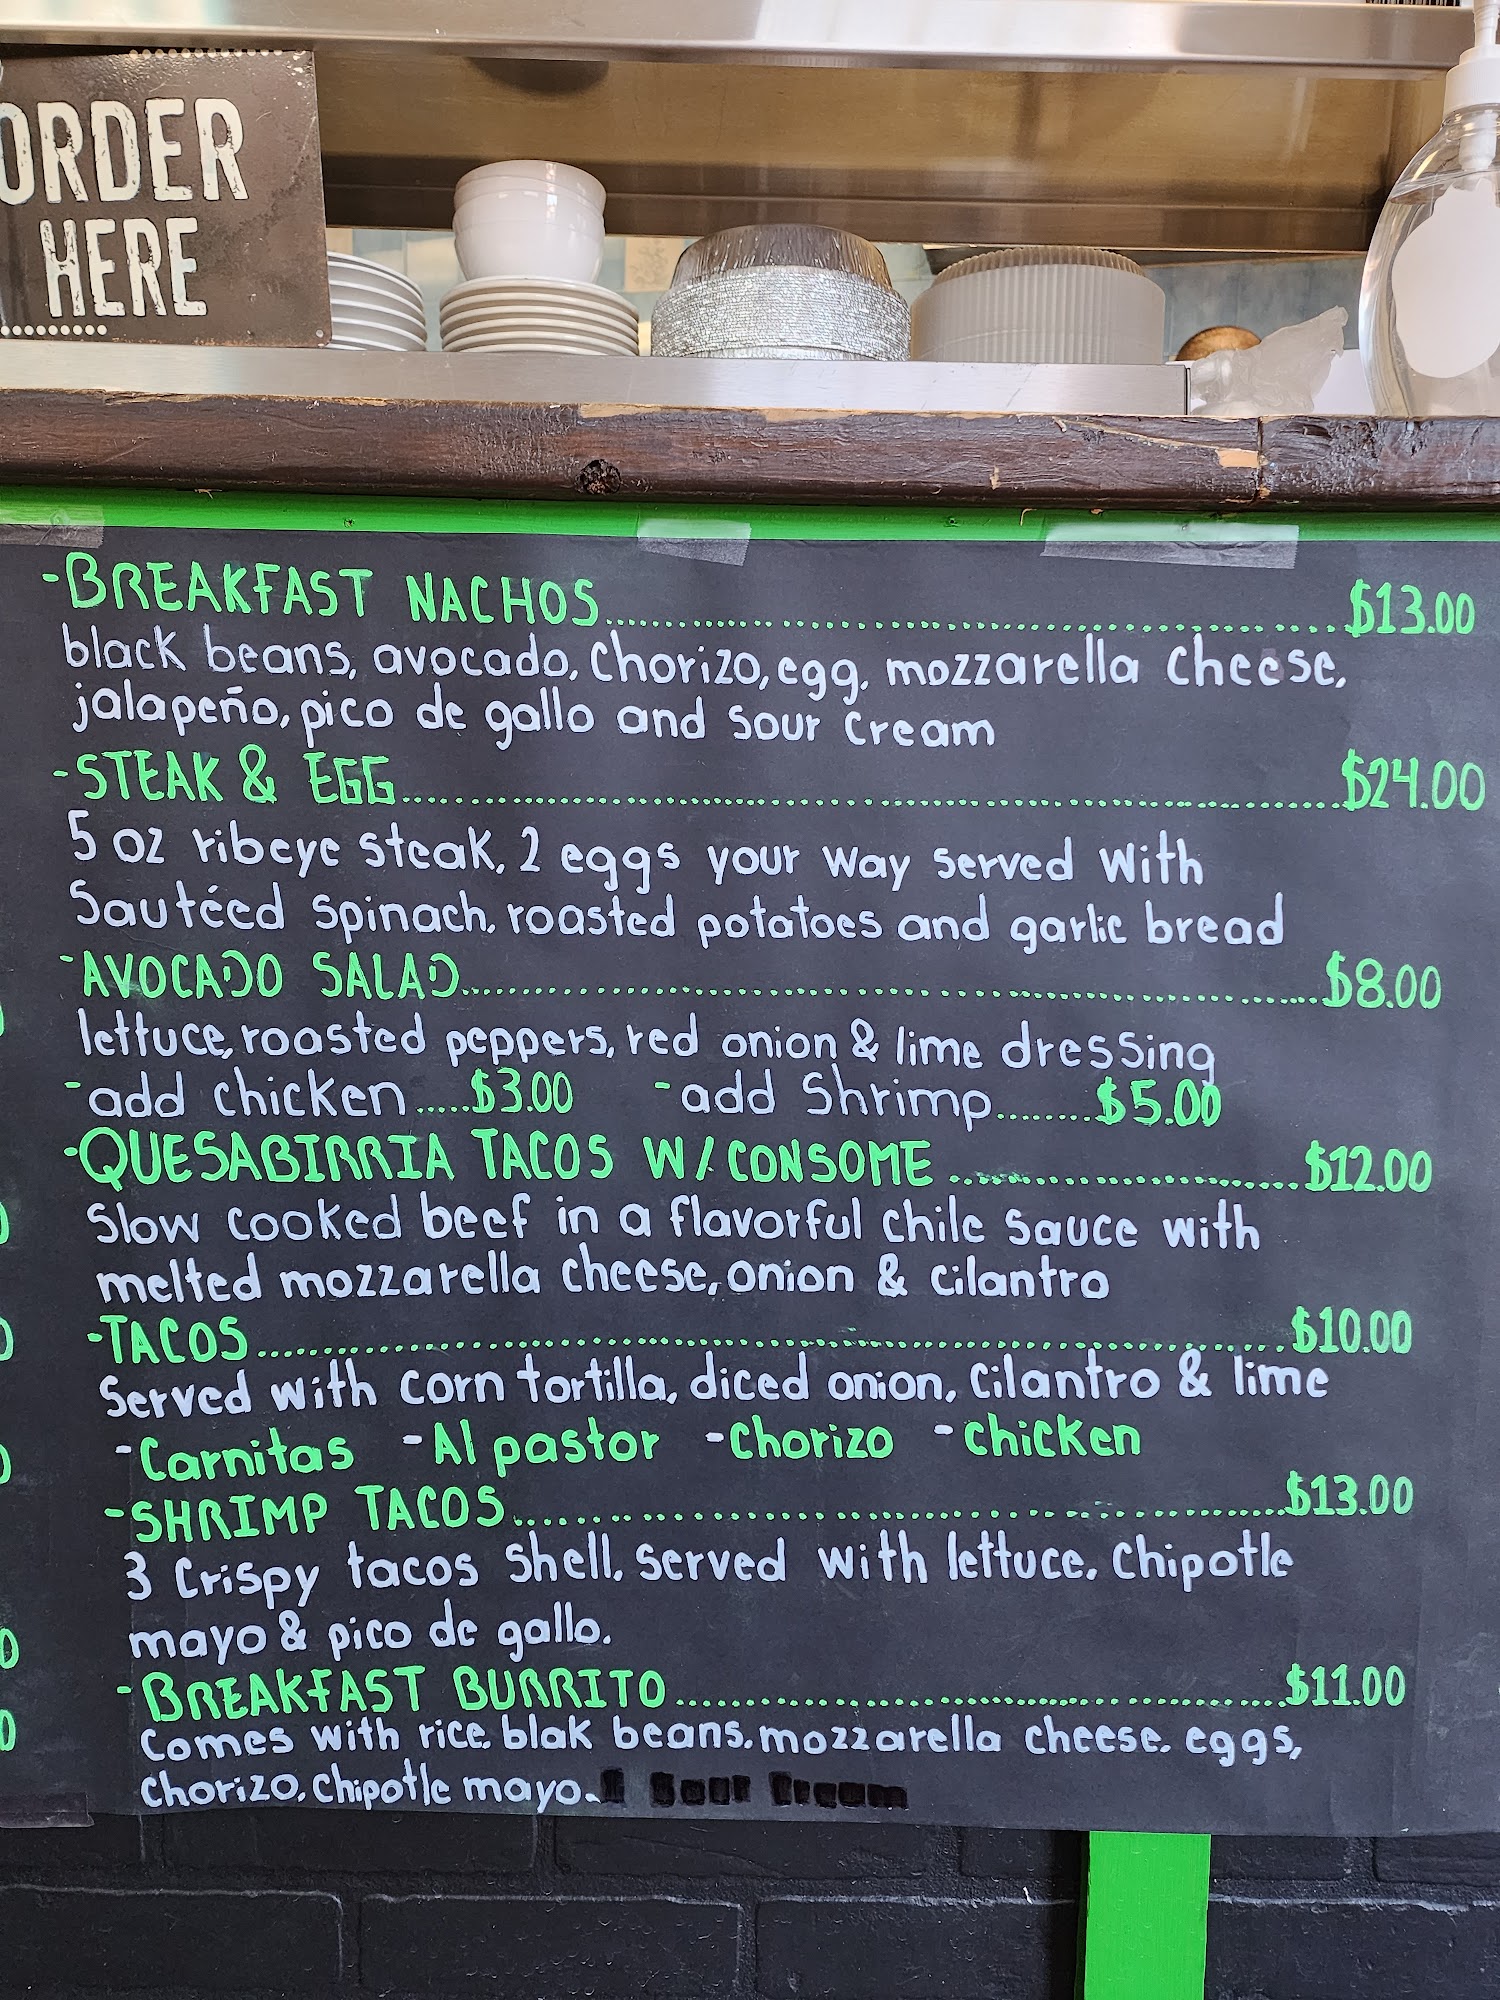 ORDER
HERE
-BREAKFAST NACHOS....................$13.00
black beans, avocado, Chorizo, egg, mozzarella cheese,
jalapeño, pico de gallo and sour cream
-STEAK & EGG....................$24.00
5 oz ribeye steak, 2 eggs your way served with
Sautéed spinach, roasted potatoes and garlic bread
-AVOCADO SALAD....................$8.00
lettuce, roasted peppers, red onion & lime dressing
-add chicken.....$3.00 -add Shrimp........$5.00
-QUESABIRRIA TACOS W/CONSOME....................$12.00
Slow cooked beef in a flavorful chile sauce with
melted mozzarella cheese, onion & cilantro
-TACOS....................$10.00
Served with corn tortilla, diced onion, Cilantro & lime
-Carnitas -Al pastor -Chorizo -Chicken
-SHRIMP TACOS....................$13.00
3 Crispy tacos shell, served with lettuce, Chipotle
mayo & pico de gallo.
-BREAKFAST BURRITO....................$11.00
Comes with rice, blak beans, mozzarella cheese, eggs,
Chorizo, Chipotle mayo.